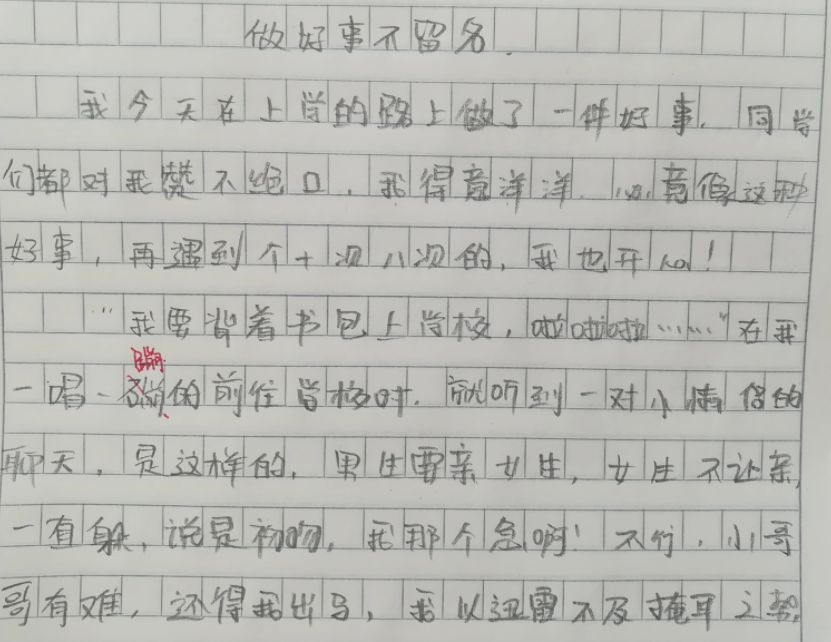 做好事不留名.
我今天在上学的路上做了一件好事.同学
们都对我赞不绝口,我得意洋洋.必竟像这种
好事,再遇到个十次八次的,我也开心!
"我要背着书包上学校,啦啦啦……"在我
一唱一蹦的前往学校时.就听到一对小情侣的
聊天,是这样的,男生要亲女生,女生不让亲,
一直躲,说是初吻,我那个急啊!不行,小哥
哥有难,还得我出马,我以迅雷不及掩耳之势